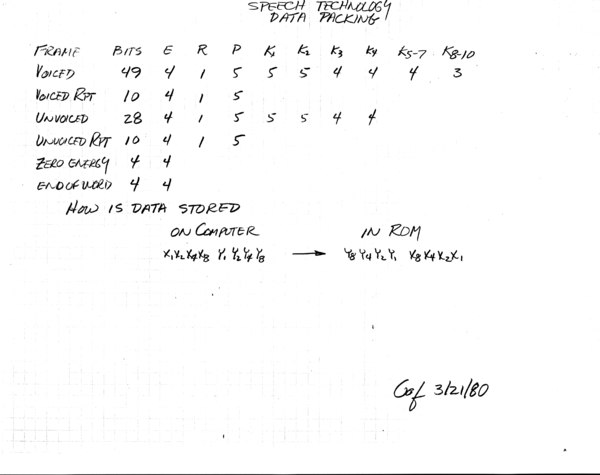 SPEECH TECHNOLOGY
DATA PACKING
FRAME BITS E R P K1 K2 K3 K4 K5-7 K8-10
VOICED 49 4 1 5 5 5 4 4 4 3
VOICED RPT 10 4 1 5
UNVOICED 28 4 1 5 5 5 4 4
UNVOICED RPT 10 4 1 5
ZERO ENERGY 4 4
END OF WORD 4 4
HOW IS DATA STORED
ON COMPUTER IN ROM
X1X2X4X8 Y1Y2Y4Y8 → Y8Y4Y2Y1 X8X4X2X1
3/21/80